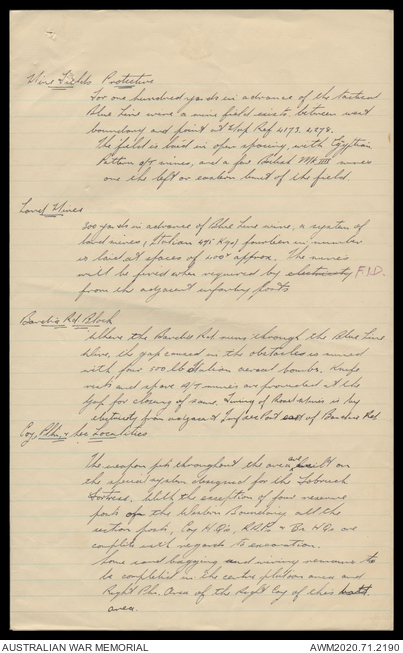 Mine Fields Protective
For one hundred yards in advance of the tactical
Blue Line wire a mine field exists, between west
boundary and point at Map Ref 4173. 4278.
The field is laid in open spacing, with Egyptian
Pattern A/T mines, and a few British MK IIII mines
one the left or eastern limit of the field.
Land Mines
300 yards in advance of Blue Line wire, a system of
land mines, Italian fourteen in number
is laid at spaces of 100x approx. The mines
will be fired when required by electricity F.I.D.
from the adjacent infantry posts
Bardia Rd Block
Where the Bardia Rd runs through the Blue Line
the gap caused in the obstacles is mined
with four 550 lb Italian aerial bombs. Knife
rests and spare A/T mines are provided at the
gap for closing of same. Firing of Road mines is by
electricity from adjacent Inf Sec Post east of Bardia Rd
Coy, Pltn, & Sec Localities
The weapon pits throughout the area are built on
the special system designed for the Tobruch
Fortress. With the exception of four reserve
posts on the Western Boundary all the
section posts, Coy H.Qrs, R.A.Ps & Bn H.Qrs are
complete with regards to excavation.
Some sand bagging and wiring remains to
be completed in the centre platoon area and
Right Pltn. Area of the Right Coy of this
area.
AUSTRALIAN WAR MEMORIAL
AWM2020.71.2190